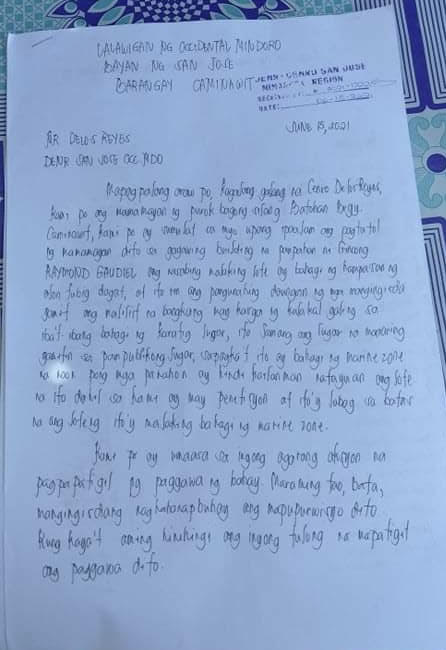 LALAWIGAN NG OCCIDENTAL MINDORO
BAYAN NG SAN JOSE
BARANGAY CAMINAWIT
DENR - CENRO SAN JOSE
REGION
DATE:
JUNE 15, 2021
MR DELOS REYES
DENR SAN JOSE OCC. MDO
Mapagpalang araw po, Kagalang galang na Cenro Delos Reyes,
kami po ang mamamayan ng purok bagong silang Batohan Brgy.
Caminawit, kami po ay sumulat sa inyo upang ipaalam ang pagtutol
ng mamamayan dito sa gagawing building na pinapatayo ni Ginoong
RAYMOND GAUDIEL ang nasabing nabiling lote ay bahagi ng hampasan ng
alon tubig dagat, at ito rin ang pangunahing daungan ng mga mangingisda
gamit ang maliliit na bangkang may karga ng kalakal galing sa
iba't-ibang bahagi ng karatig lugar, ito lamang ang lugar na maaaring
gamitin sa pampublikong lugar, sapagkat ito ay bahagi ng marine zone
na noon pong mga panahon ay hindi natayuan ang lote
na ito dahil sa kami ay may petisyon at ito'y labag sa batas
na ang loteng ito'y malaking bahagi ng marine zone.
Kami po ay umaasa sa inyong agarang aksyon na
pagpapatigil ng paggawa ng bahay. Maraming tao, bata,
mangingisdang naghahanapbuhay ang mapupurwisyo dito.
Kung kaya't aming hinihingi ang inyong tulong na mapatigil
ang paggawa dito.